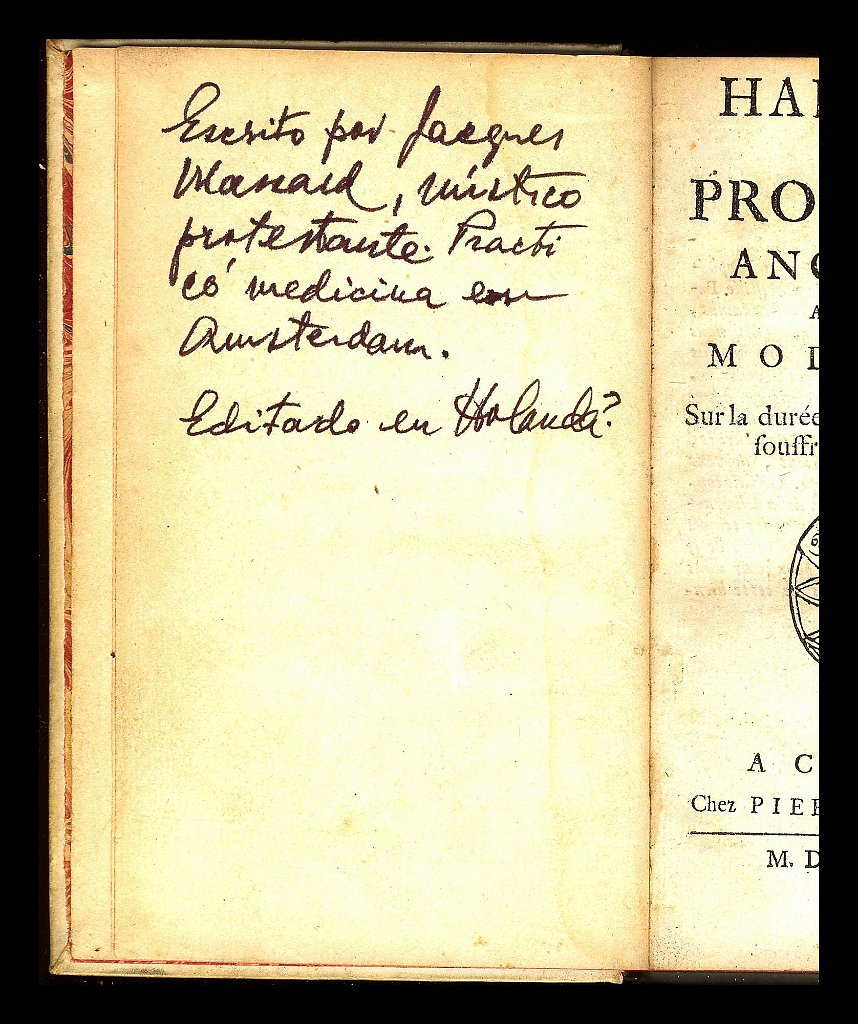 Escrito por Jacques
Massard, místico
protestante. Practi
có medicina en
Amsterdam.
Editado en Holanda?
HA
PRO
AN
A
MOD
Sur la durée
souffr
A C
Chez PIE
M. D